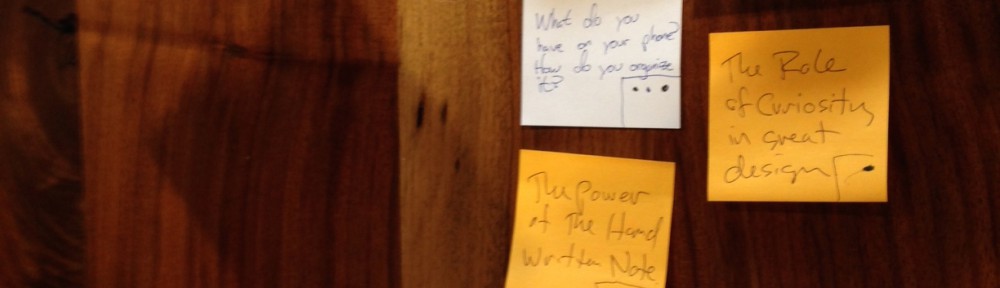 What do you
have on your phone?
How do you organize
it?
The Role
of Curiosity
in great
design
The Power
of The Hand
Written Note